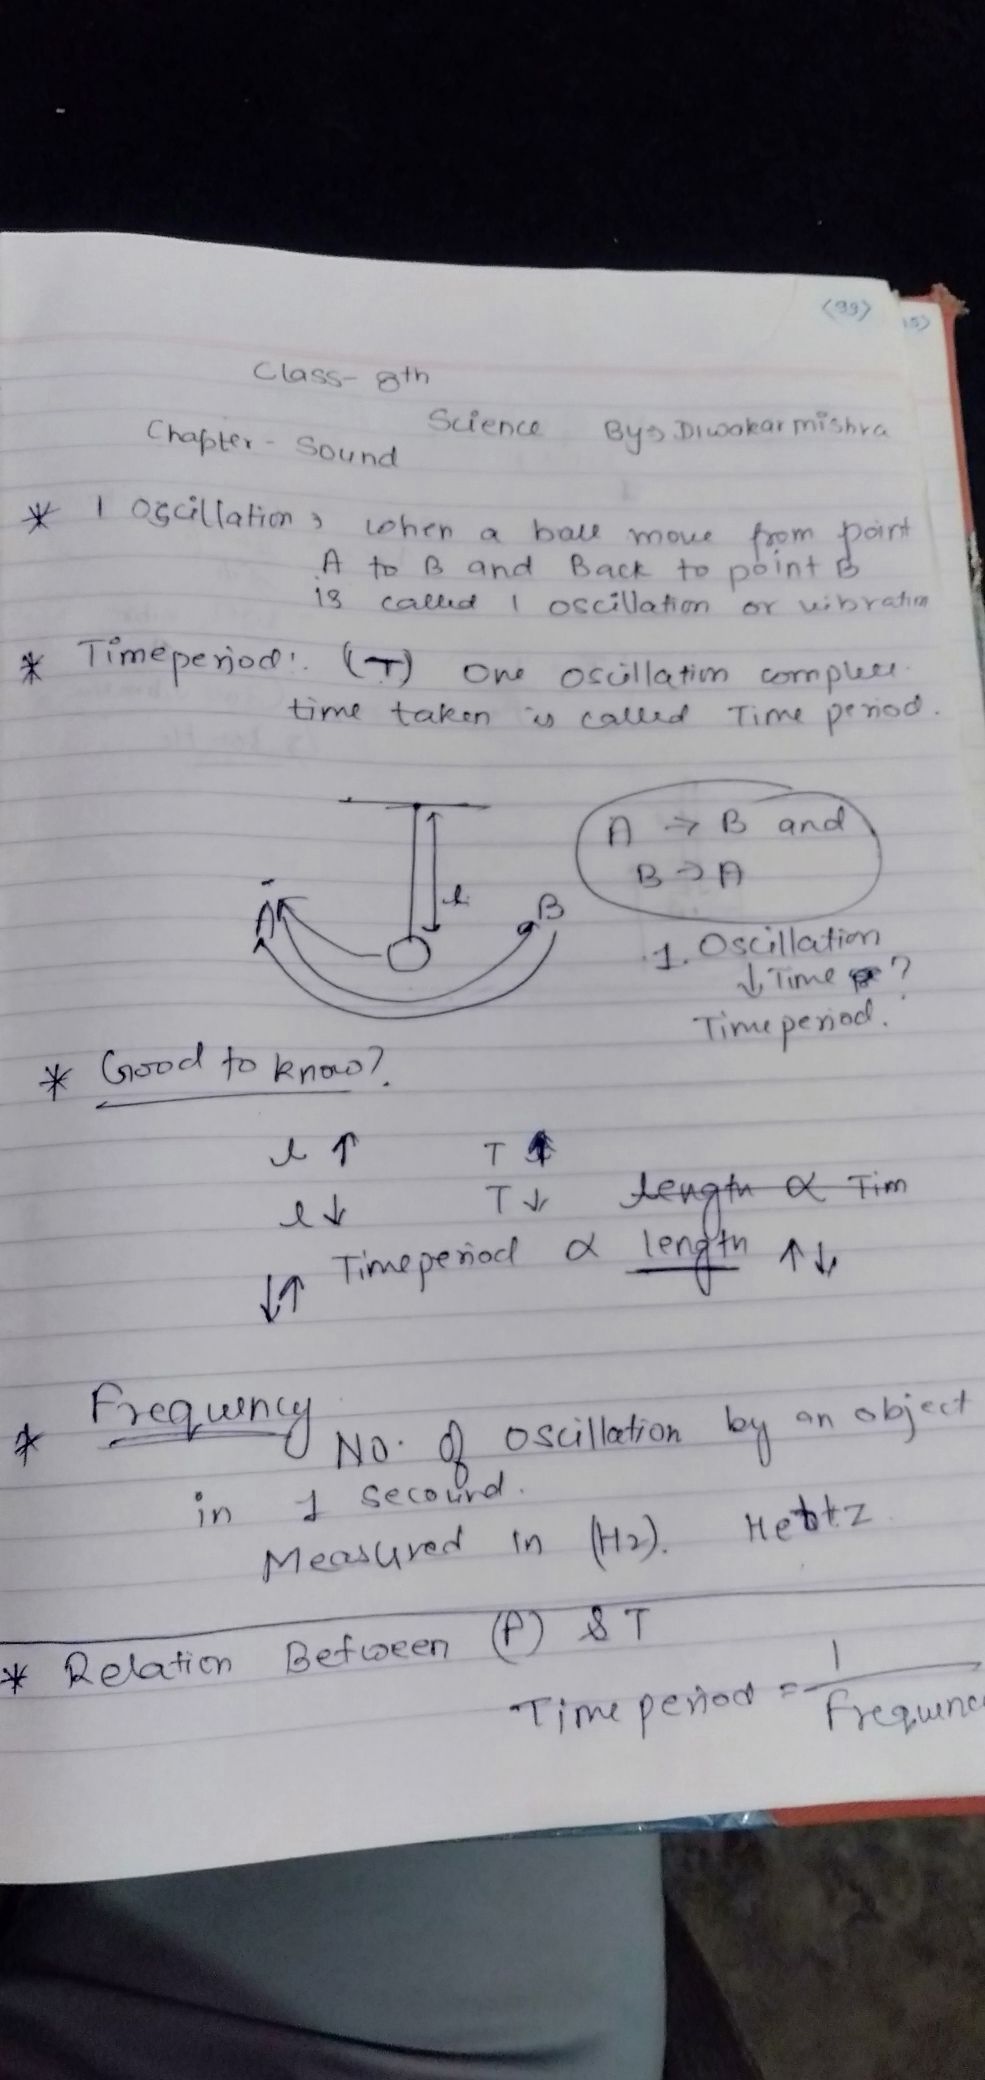 (99)
15)
Class- 8th
Science By→ Diwakar mishra
Chapter - Sound
* 1 Oscillation → when a ball move from point
A to B and Back to point B
is called 1 oscillation or vibration
* Timeperiod:. (T) One oscillation complete
time taken is called Time period.
A → B and
B → A
l
A B
1. Oscillation
↓ Time ?
Time period.
* Good to know?
l ↑ T ↑
l ↓ T ↓ length ∝ Tim
Timeperiod ∝ length ↑↓
↓↑
* Frequency
No. of oscillation by an object
in 1 secound.
Measured in (Hz). Hertz
* Relation Between (f) & T
Time period = 1
Frequenc